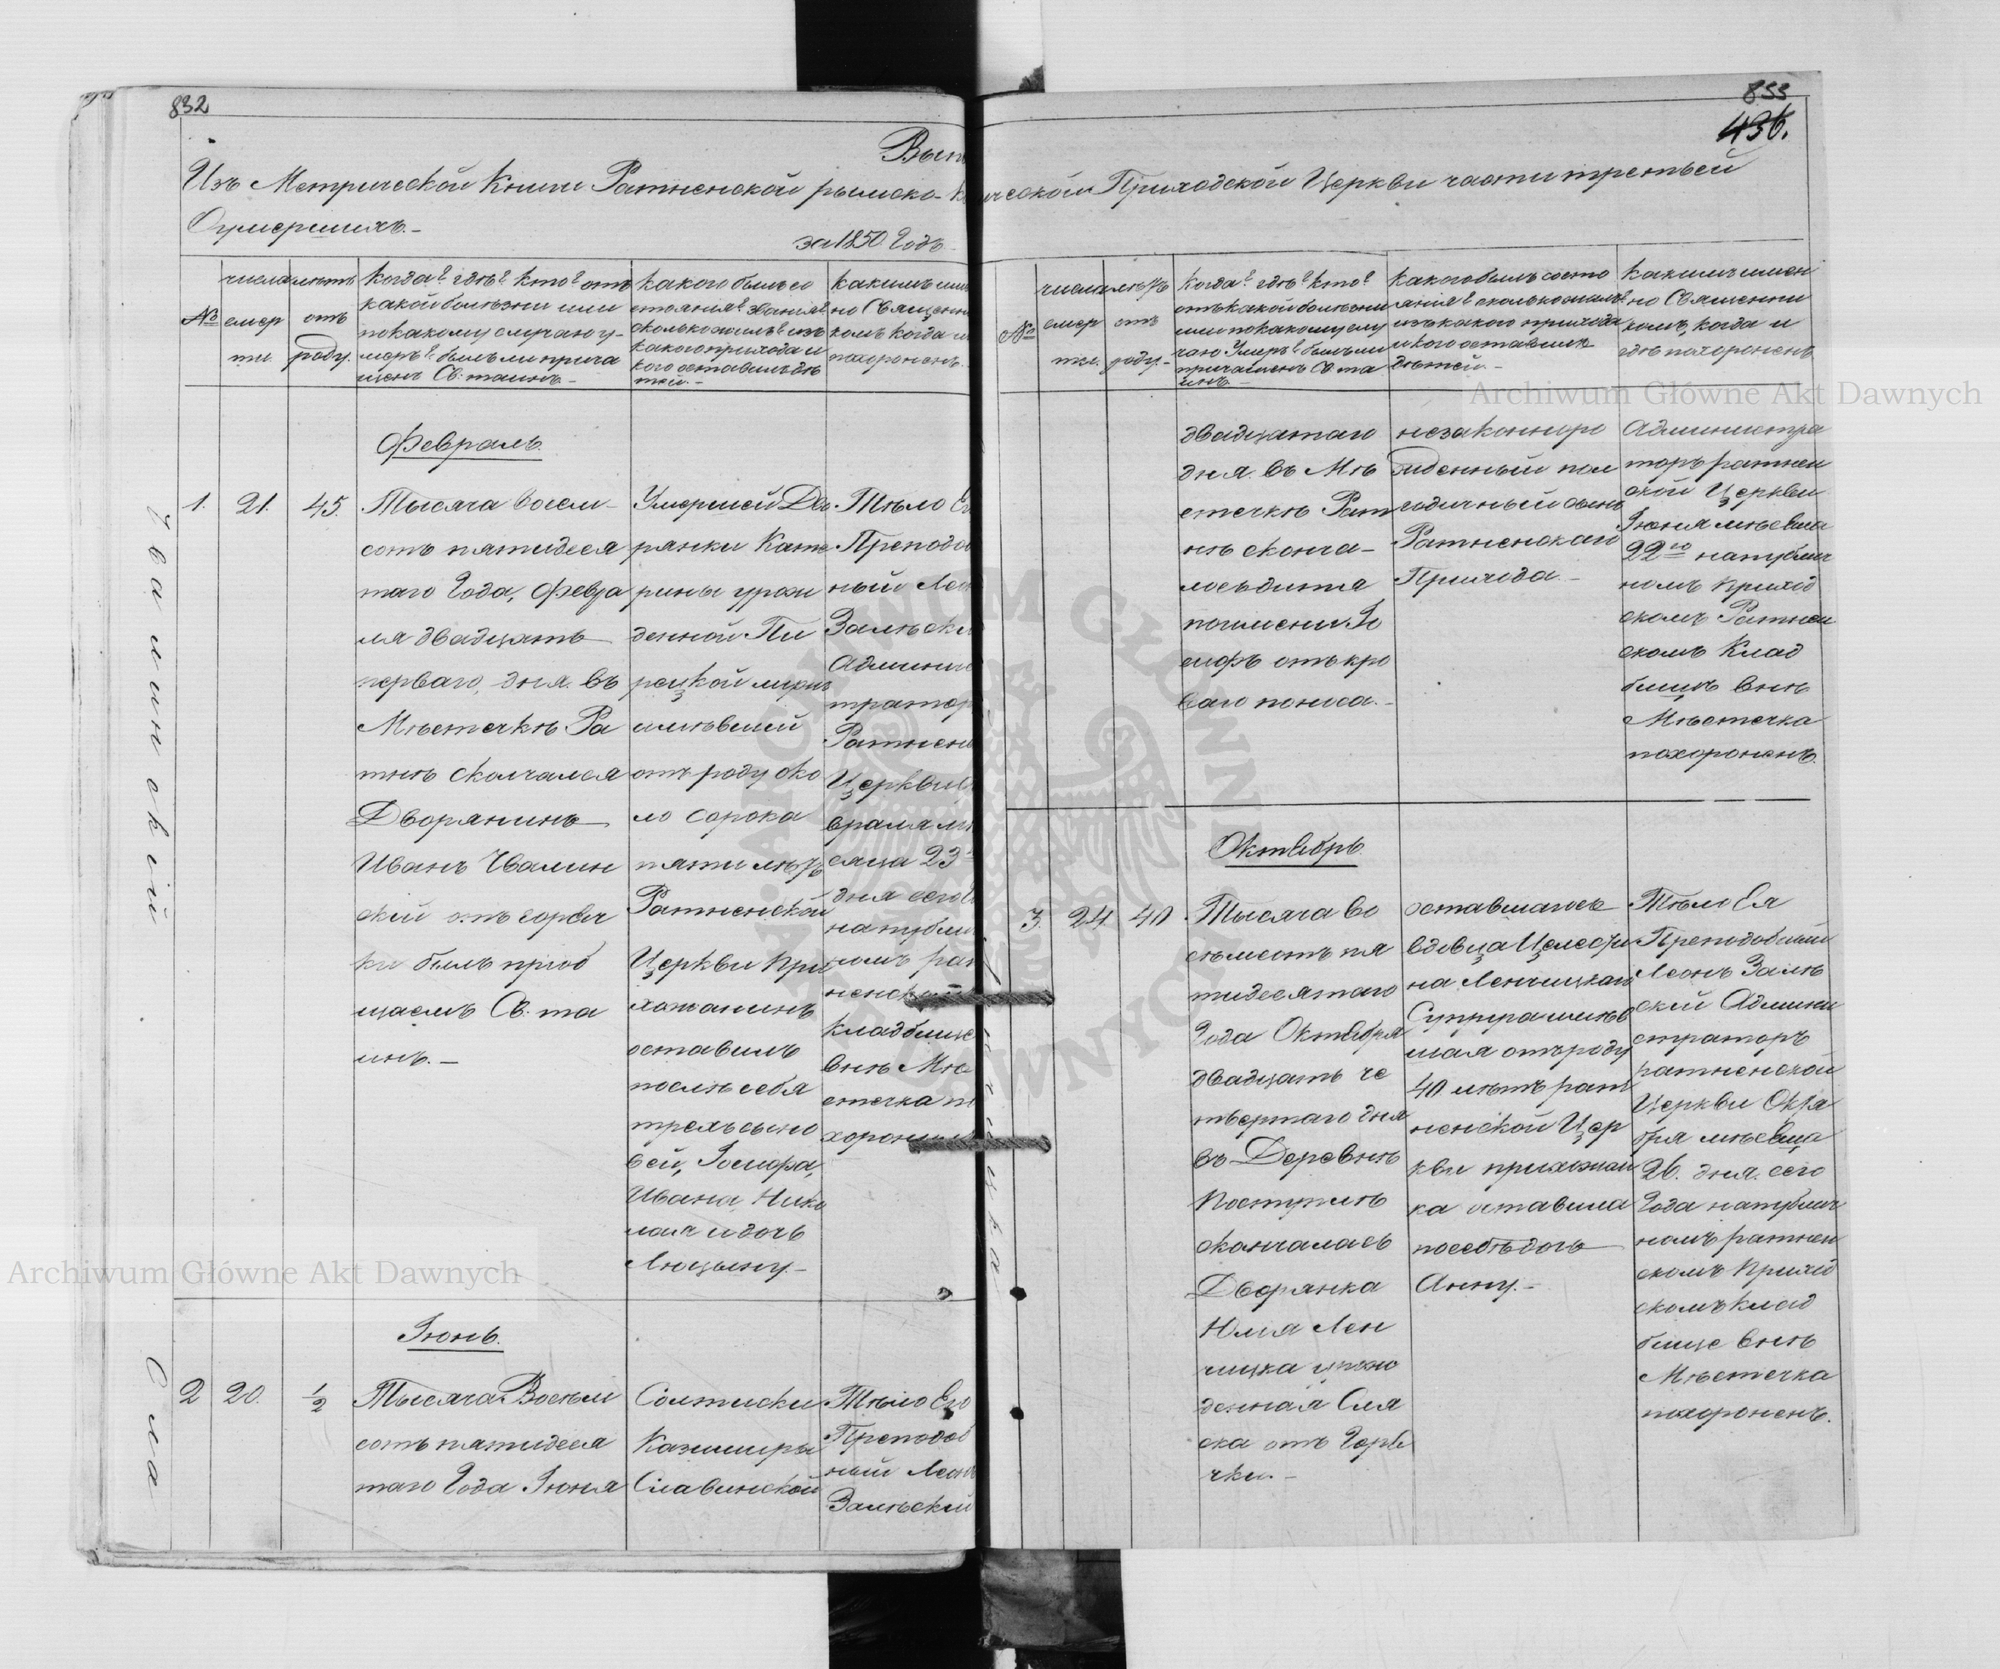 832
Вып
Изъ Метрической Книги Ратненской римско-к
О умершихъ.-
за 1850 Годъ.
числа
№
смер
ти.
лѣтъ
отъ
роду.
Когда? гдѣ? кто? отъ
какой болѣзни или
по какому случаю у-
меръ? былъ ли прича
щенъ Св. таинъ.-
какого былъ со
стоянія? званія?
сколько жилъ? изъ
какого прихода и
кого оставилъ дѣ
тей.-
какимъ имен
но Священни
комъ когда и
похороненъ.
Февраль.
1.
21.
45.
Тысяча восем-
сотъ пятидеся
таго Года, Февра
ля двадцать
перваго, дня. въ
Мѣстечкѣ Ра
тнѣ скончался
Дворянинъ
Иванъ Чвалин
скій отъ горяч
ки былъ приоб
щаемъ Св. та
инъ.-
Умершей Дво
рянки Кате
рины урож
денной Пи
рецкой мужъ
имѣвшій
отъ роду око
ло сорока
пяти лѣтъ
Ратненской
Церкви При
хожанинъ
оставилъ
послѣ себя
трехъ сыно
вей, Іосифа,
Ивана, Нико
лая и дочь
Люцыну.-
Тѣло Ег
Преподоб
ный Леон
Залѣски
Админис
траторъ
Ратненс
Церкви Фе
враля мѣ
сяца 23
дня сего
на публи
номъ рат
ненском
кладбище
внѣ Мѣ
стечка по
хоронил
Чвалинскій
Іюнь.
2
20.
1/2
Тысяча Восемь
сотъ пятидеся
таго Года Іюня
Солтиски
Казимиры
Славинской
Тѣло Его
Преподоб
ный Леонъ
Залѣскій
833
436.
ической Приходской Церкви части третьей
№
числа
смер
ти.
лѣтъ
отъ
роду.-
Когда? гдѣ? кто?
отъ какой болѣзни
или по какому слу
чаю Умеръ? былъ ли
причащенъ Св. та
инъ.-
Какого былъ состо
янія? сколько жилъ?
изъ какого прихода
и кого оставилъ
дѣтей.-
Какимъ имен
но Священни
комъ, когда и
гдѣ похороненъ
двадцатаго
дня. въ Мѣ
стечкѣ Рат
нѣ сконча-
лось дитя
по имени Іо
сифъ отъ кро
ваго поноса.-
незаконноро
жденный пол
годичный сынъ
Ратненскаго
Прихода.-
Администра
торъ ратнен
ской Церкви
Іюня мѣсяца
22го на публич
номъ приход
скомъ Ратнен
скомъ Клад
бищѣ внѣ
Мѣстечка
похороненъ.
Октябрь.
3.
24
40
Тысяча во
сѣмсотъ пя
тидесятаго
Года Октября
двадцать че
твертаго дня
въ Деревнѣ
скончалась
Дворянка
Юлія Лен
чицка урож
денная Сля
ска отъ Горя
чки.-
оставшагося
вдовца Целести
на Ленчицкаго
Супруга имѣв
шая отъ роду
40 лѣтъ рат
ненской Цер
кви прихожан
ка оставила
по себѣ дочь
Анну.-
Тѣло Ея
Преподобный
Леонъ Залѣ
скій Админи
страторъ
ратненской
Церкви Октя
бря мѣсяца
26. дня. сего
Года на публич
номъ ратнен
скомъ приход
скомъ клад
бище внѣ
Мѣстечка
похороненъ.
Archiwum Główne Akt Dawnych
Archiwum Główne Akt Dawnych